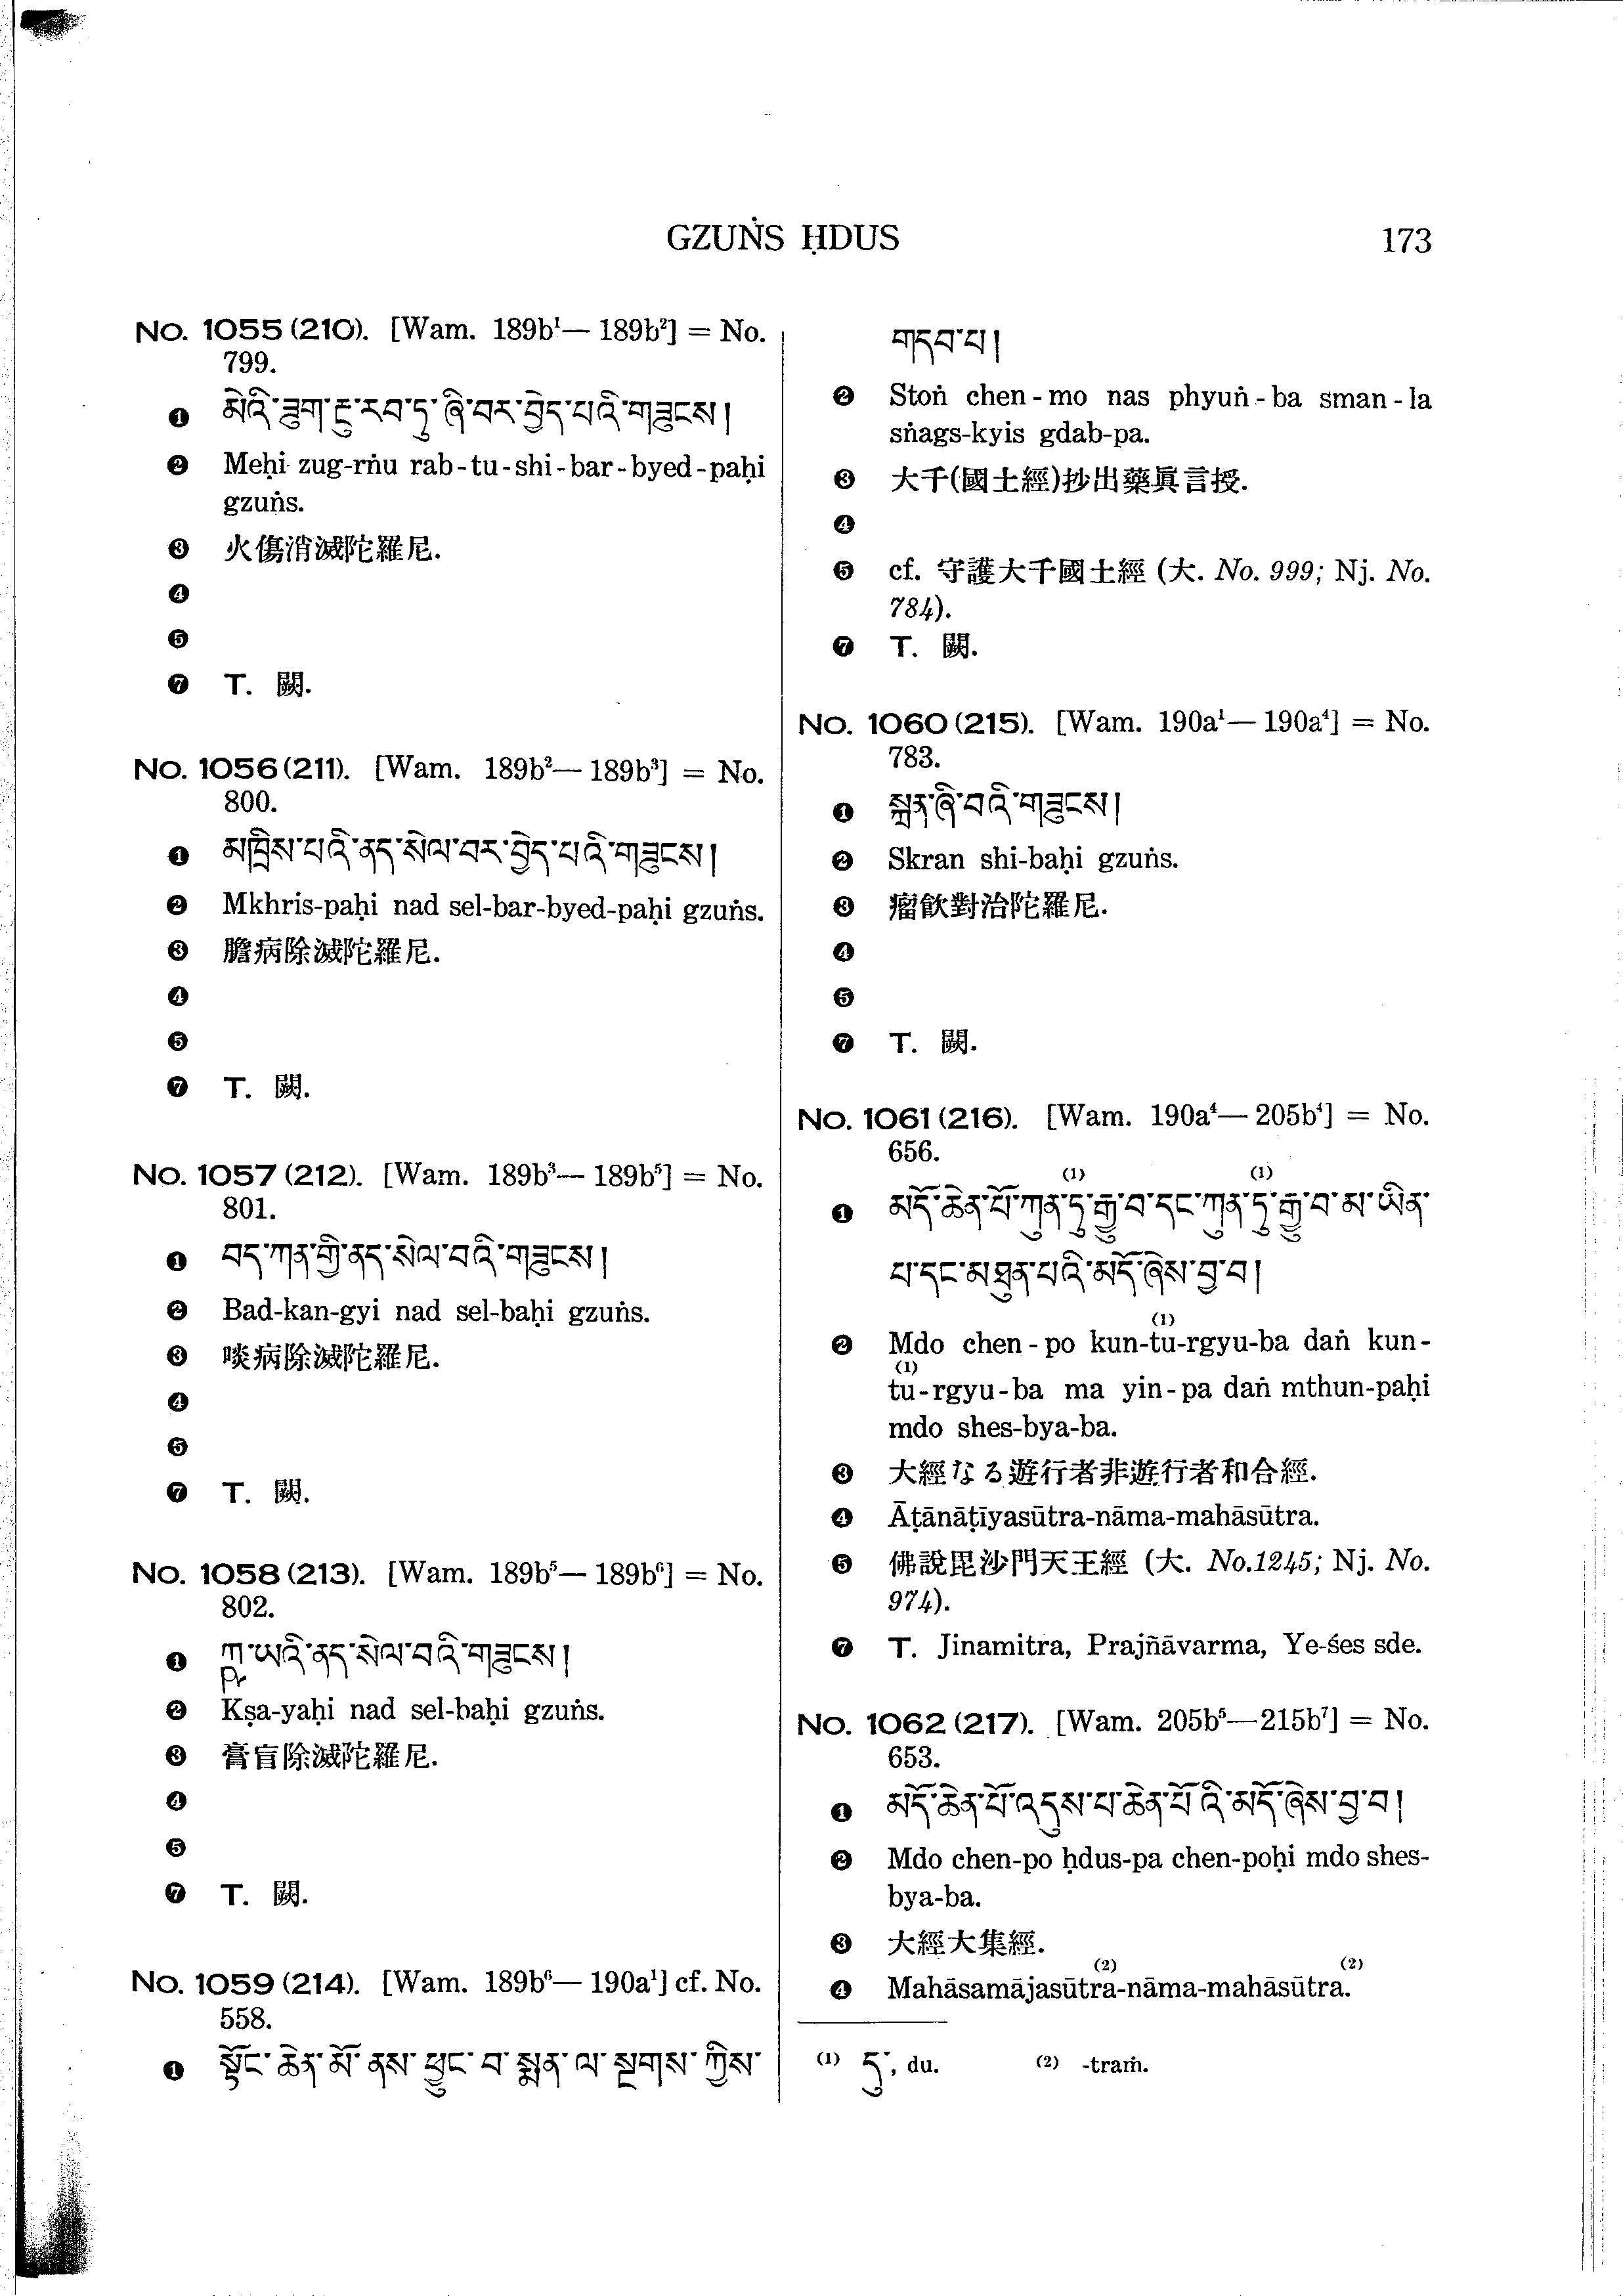 GZUṄS ḤDUS
173
No. 1055 (210). [Wam. 189b¹— 189b²] = No.
799.
❶ མེའི་ཟུག་རྔུ་རབ་ཏུ་ཞི་བར་བྱེད་པའི་གཟུངས།
❷ Meḥi zug-rṅu rab-tu-shi-bar-byed-paḥi
gzuṅs.
❸ 火傷消滅陀羅尼.
❹
❺
❼ T. 闕.
No. 1056 (211). [Wam. 189b²— 189b³] = No.
800.
❶ མཁྲིས་པའི་ནད་སེལ་བར་བྱེད་པའི་གཟུངས།
❷ Mkhris-paḥi nad sel-bar-byed-paḥi gzuṅs.
❸ 膽病除滅陀羅尼.
❹
❺
❼ T. 闕.
No. 1057 (212). [Wam. 189b³— 189b⁵] = No.
801.
❶ བད་ཀན་གྱི་ནད་སེལ་བའི་གཟུངས།
❷ Bad-kan-gyi nad sel-baḥi gzuṅs.
❸ 啖病除滅陀羅尼.
❹
❺
❼ T. 闕.
No. 1058 (213). [Wam. 189b⁵— 189b⁶] = No.
802.
❶ ཀྵ་ཡའི་ནད་སེལ་བའི་གཟུངས།
❷ Kṣa-yaḥi nad sel-baḥi gzuṅs.
❸ 膏盲除滅陀羅尼.
❹
❺
❼ T. 闕.
No. 1059 (214). [Wam. 189b⁶— 190a¹] cf. No.
558.
❶ སྟོང་ཆེན་མོ་ནས་ཕྱུང་བ་སྨན་ལ་སྔགས་ཀྱིས་
གདབ་པ།
❷ Stoṅ chen-mo nas phyuṅ-ba sman-la
sṅags-kyis gdab-pa.
❸ 大千(國土經)抄出藥眞言授.
❹
❺ cf. 守護大千國土經 (大. No. 999; Nj. No.
784).
❼ T. 闕.
No. 1060 (215). [Wam. 190a¹— 190a⁴] = No.
783.
❶ སྐྲན་ཞི་བའི་གཟུངས།
❷ Skran shi-baḥi gzuṅs.
❸ 瘤飮對治陀羅尼.
❹
❺
❼ T. 闕.
No. 1061 (216). [Wam. 190a⁴— 205b⁴] = No.
656.
(1) (1)
❶ མདོ་ཆེན་པོ་ཀུན་ཏུ་རྒྱུ་བ་དང་ཀུན་ཏུ་རྒྱུ་བ་མ་ཡིན་
པ་དང་མཐུན་པའི་མདོ་ཞེས་བྱ་བ།
(1)
❷ Mdo chen-po kun-tu-rgyu-ba daṅ kun-
(1)
tu-rgyu-ba ma yin-pa daṅ mthun-paḥi
mdo shes-bya-ba.
❸ 大經なる遊行者非遊行者和合經.
❹ Āṭānāṭīyasūtra-nāma-mahāsūtra.
❺ 佛說毘沙門天王經 (大. No.1245; Nj. No.
974).
❼ T. Jinamitra, Prajñāvarma, Ye-śes sde.
No. 1062 (217). [Wam. 205b⁵—215b⁷] = No.
653.
❶ མདོ་ཆེན་པོ་འདུས་པ་ཆེན་པོའི་མདོ་ཞེས་བྱ་བ།
❷ Mdo chen-po ḥdus-pa chen-poḥi mdo shes-
bya-ba.
❸ 大經大集經.
(2) (2)
❹ Mahāsamājasūtra-nāma-mahāsūtra.
(1) དུ་, du. (2) -traṁ.